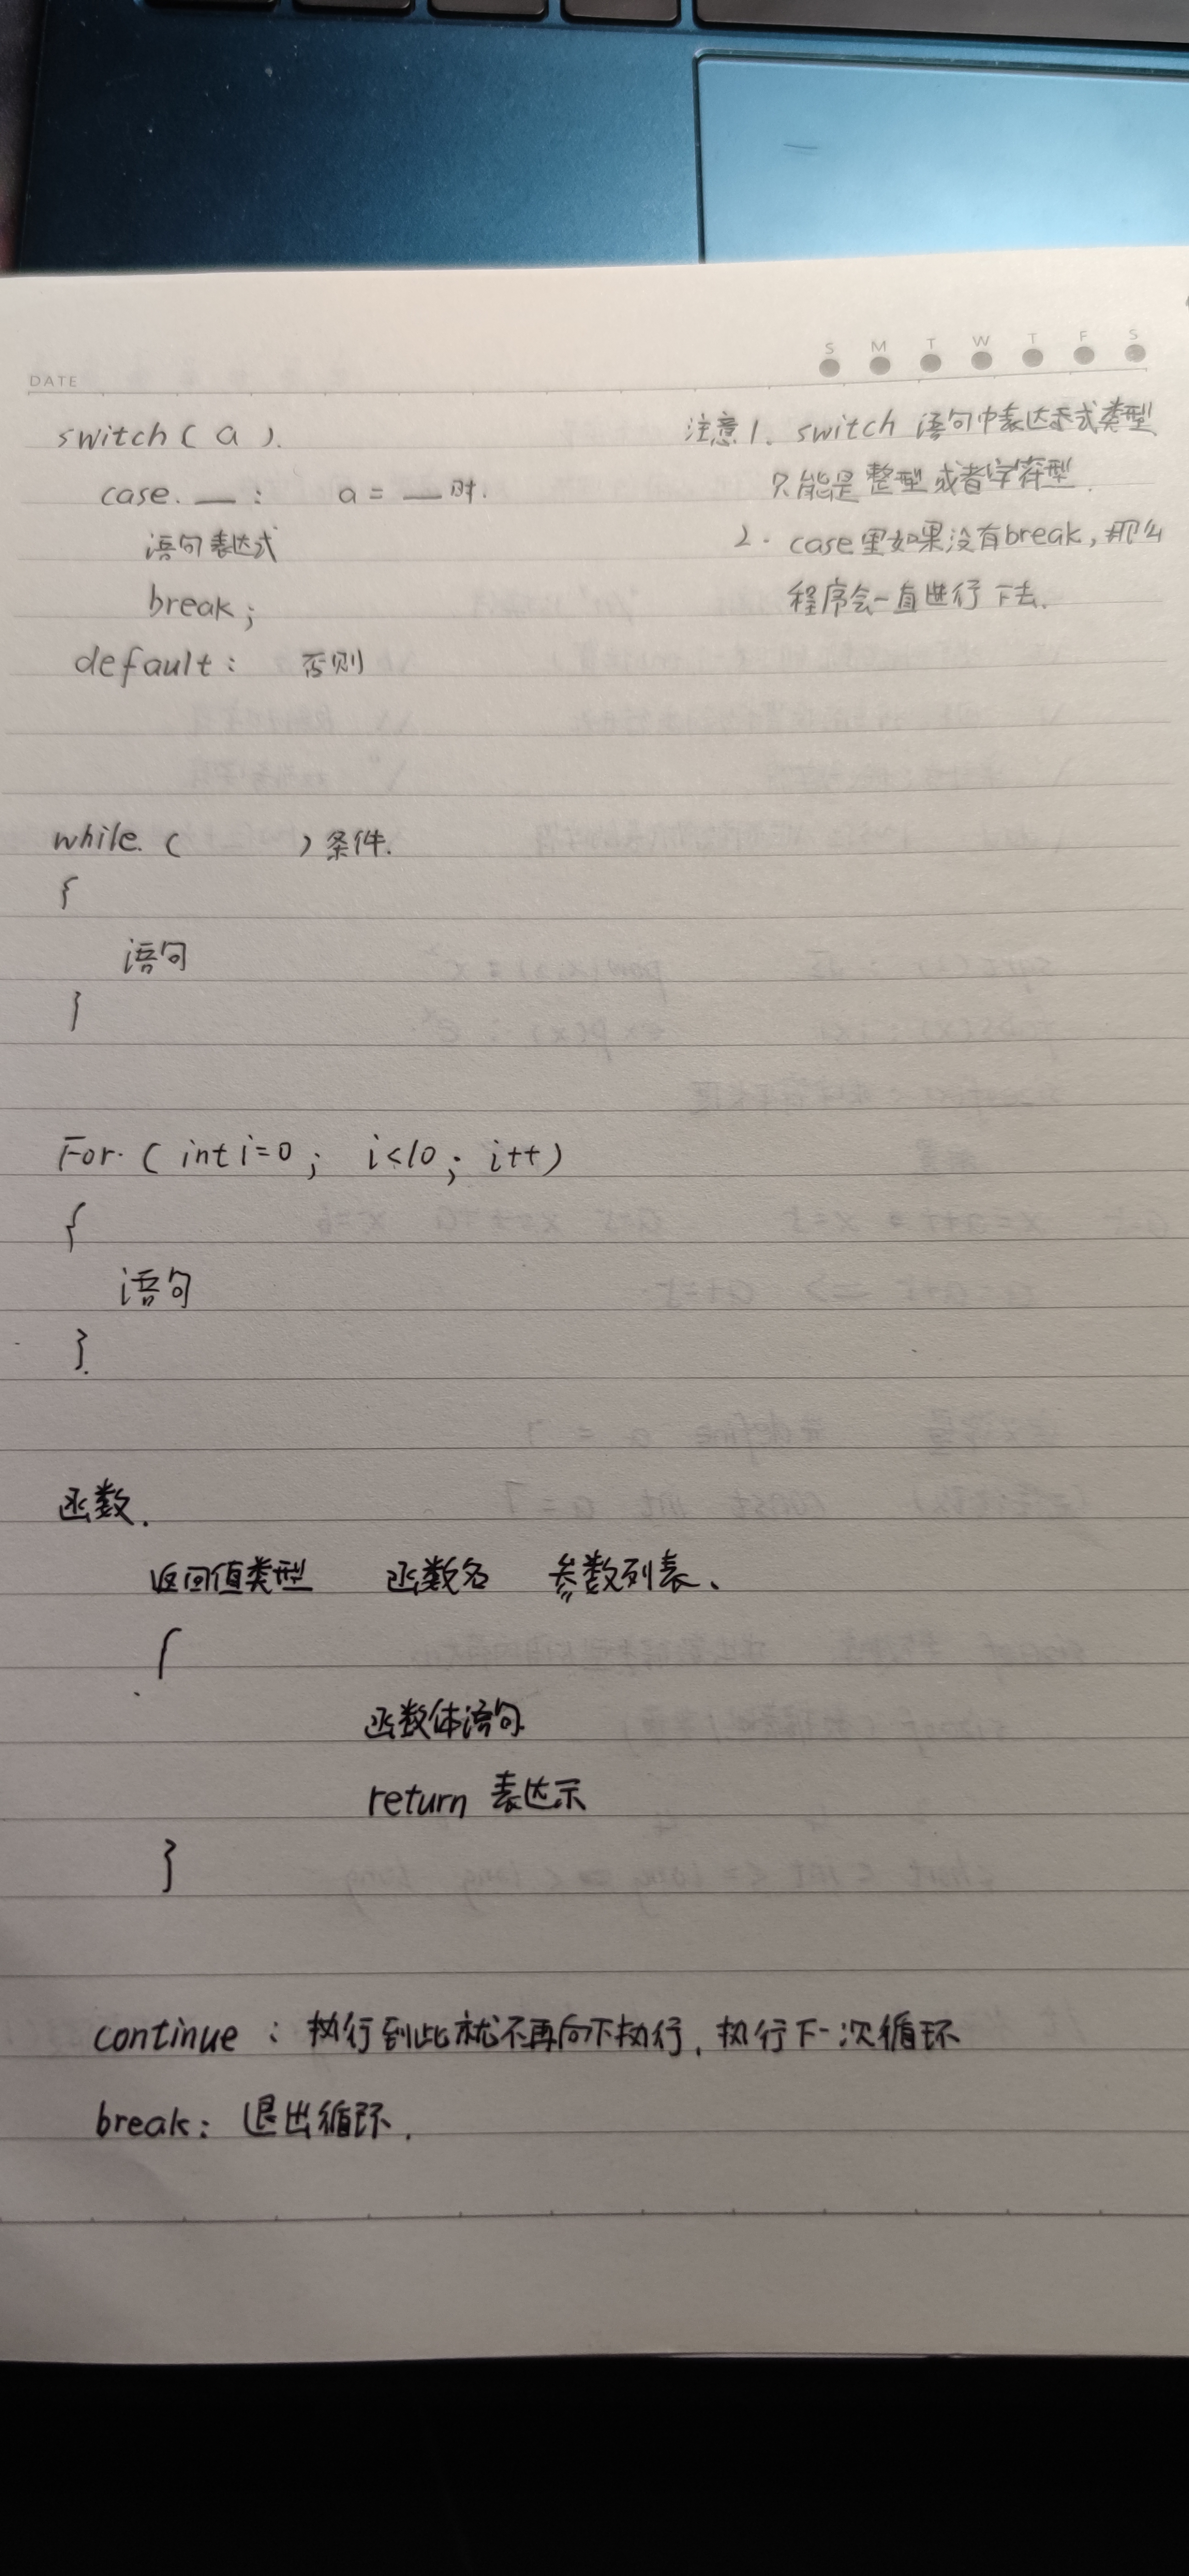 DATE
S M T W T F S
switch ( a ).
case. __ : a = __ 时.
语句表达式
break;
default: 否则
注意1、switch 语句中表达式类型
只能是整型或者字符型.
2. case里如果没有break, 那么
程序会一直进行下去.
while. ( ) 条件.
{
语句
}
For. ( int i=0 ; i<10 ; i++ )
{
语句
}.
函数.
返回值类型 函数名 参数列表、
{
函数体语句
return 表达示
}
continue : 执行到此就不再向下执行, 执行下一次循环
break: 退出循环.